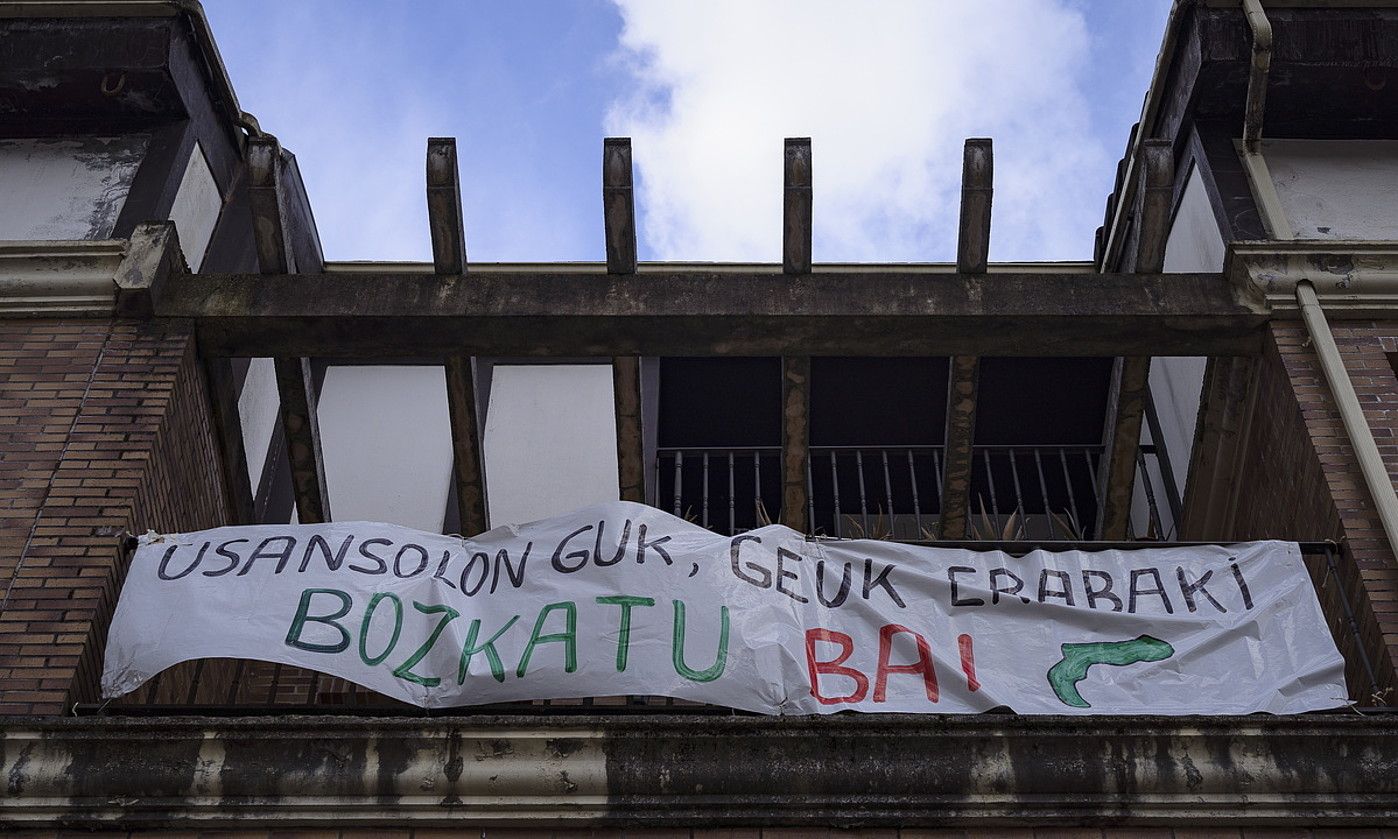 USANSOLON GUK, GEUK ERABAKI
BOZKATU BAI